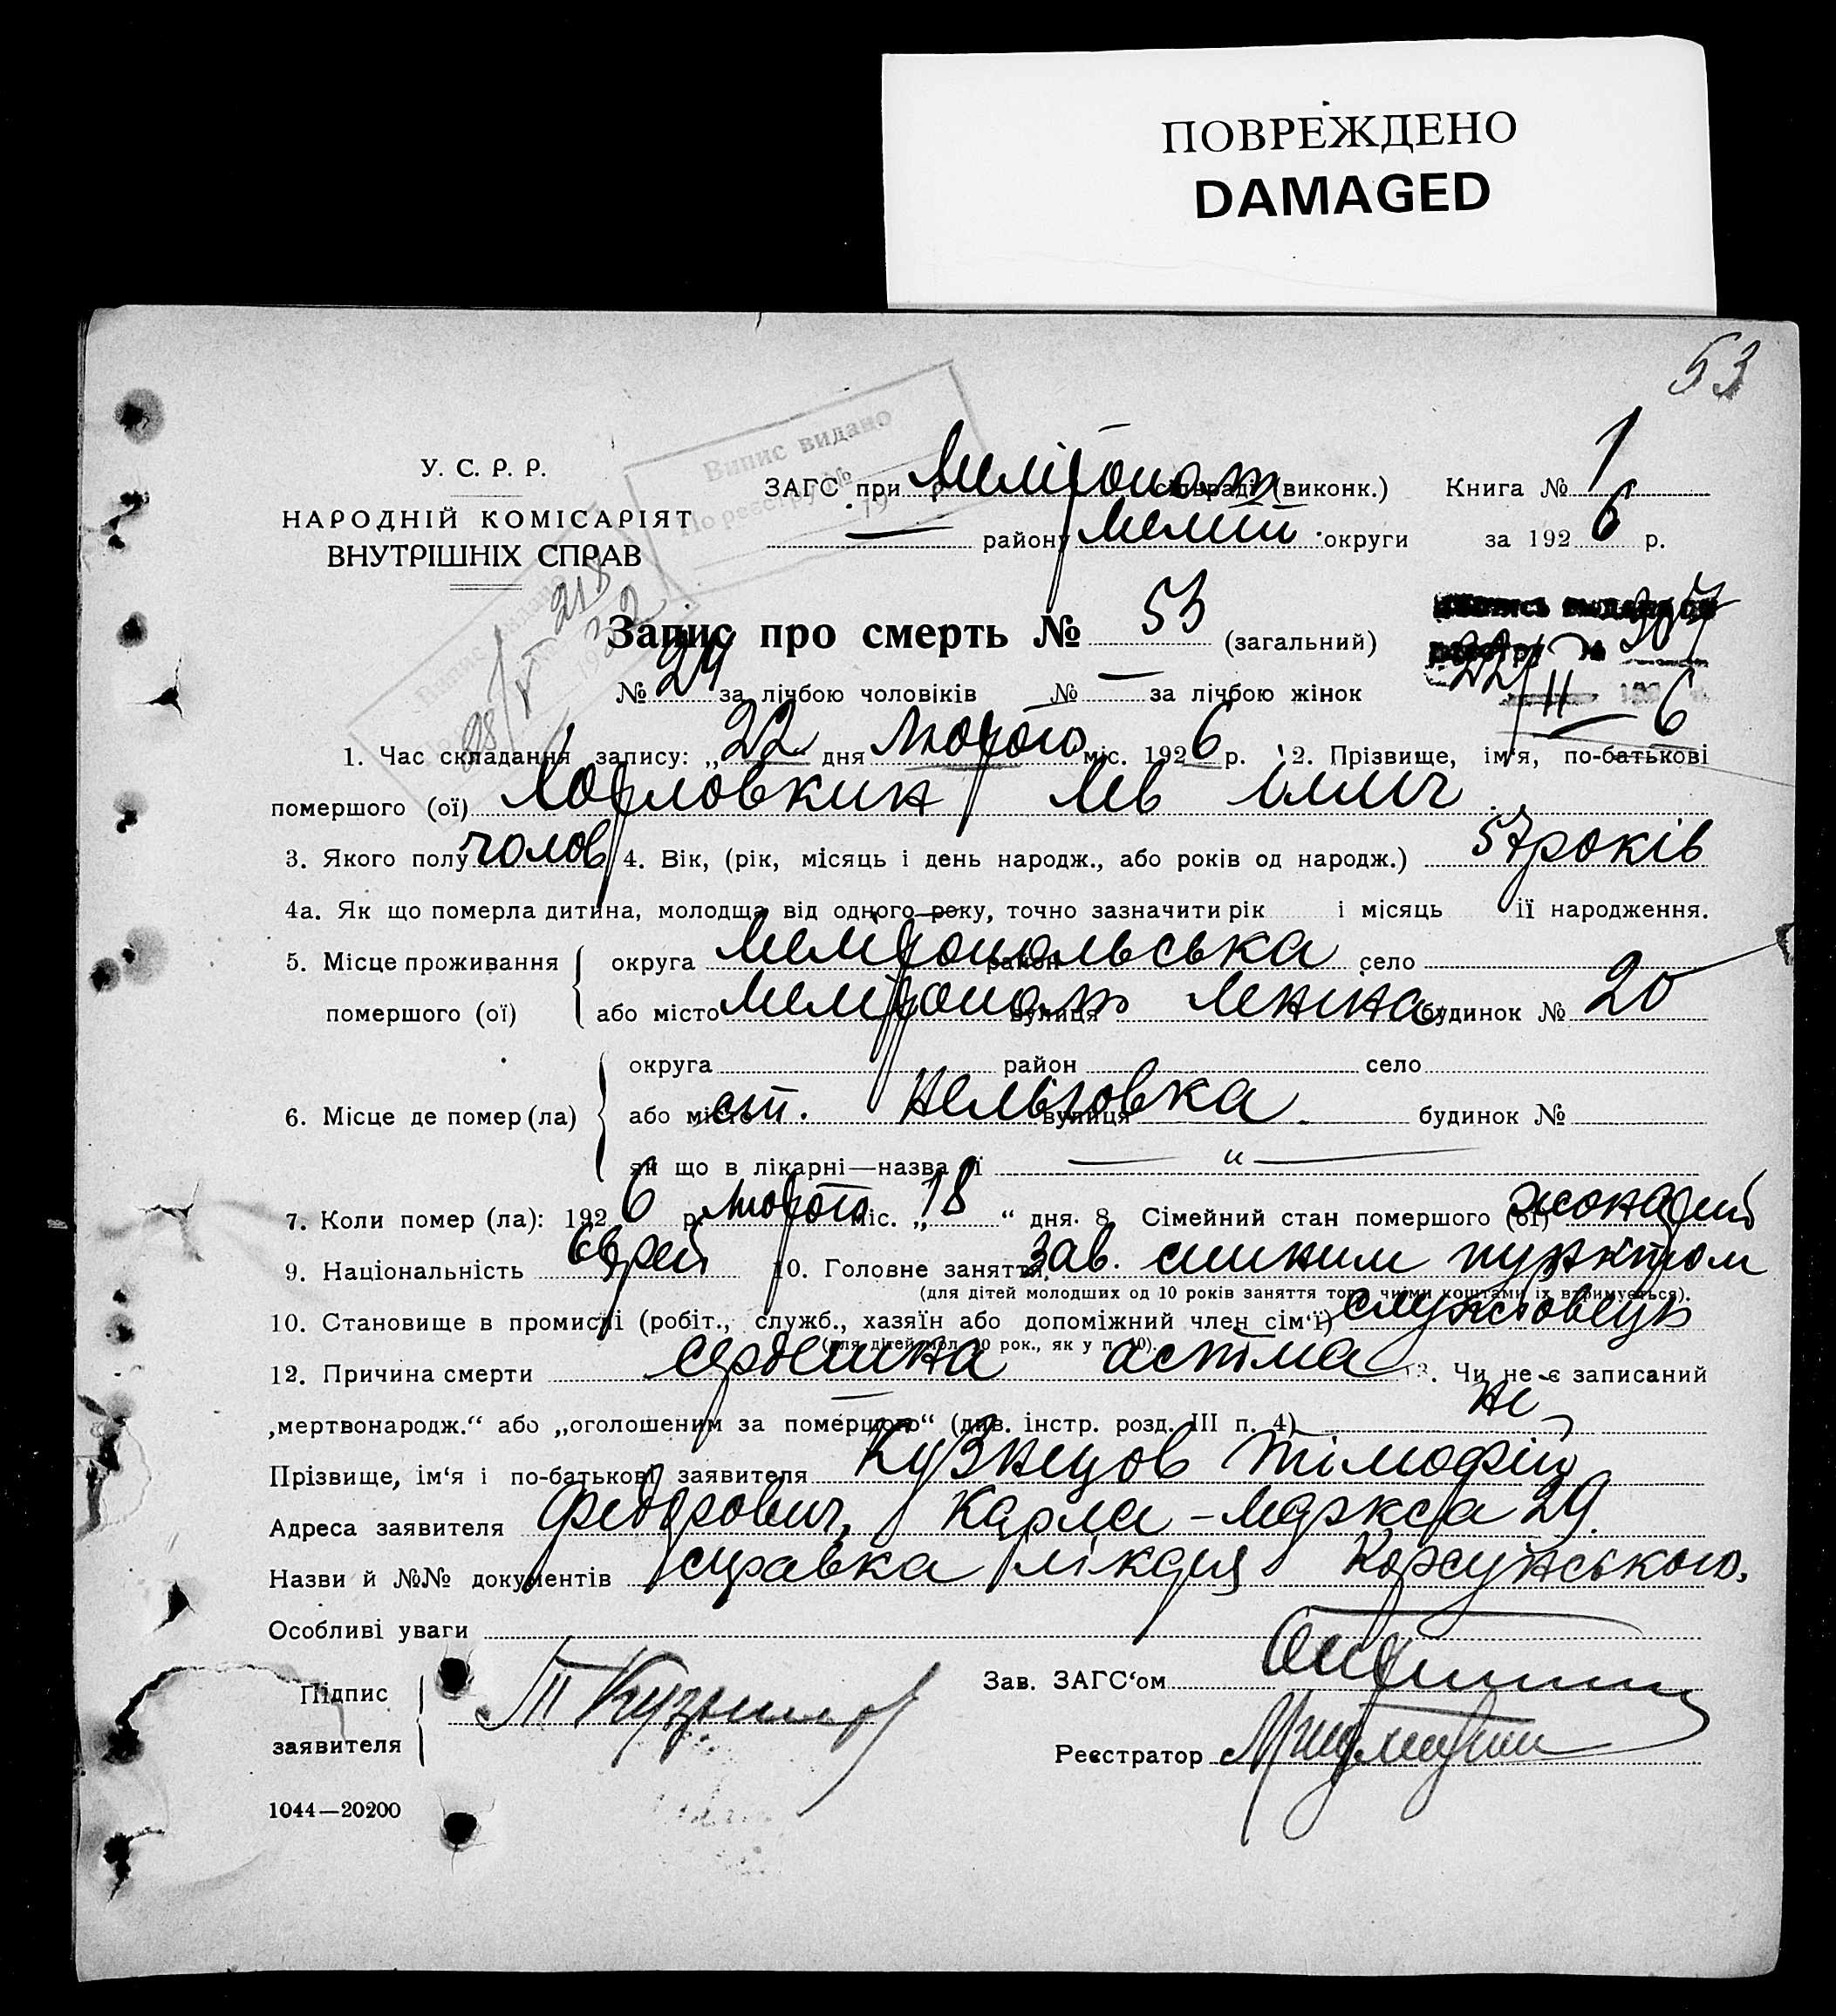 ПОВРЕЖДЕНО
DAMAGED
53
У. С. Р. Р.
НАРОДНІЙ КОМІСАРІЯТ
ВНУТРІШНІХ СПРАВ
Випис видано
По реєстру №
19
ЗАГС при Мелітопол сільраді (виконк.) Книга № 1
— району Меліт. округи за 1926 р.
Запис про смерть № 53 (загальний)
№ 24 за лічбою чоловіків № — за лічбою жінок
22/II 6
1. Час складання запису: „22 дня Лютого міс. 1926 р. 2. Прізвище, ім'я, по-батькові
помершого (ої) Лев Ілліч
3. Якого полу чолов 4. Вік, (рік, місяць і день народж., або років од народж.) 57 років
4а. Як що померла дитина, молодща від одного року, точно зазначити рік і місяць її народження.
5. Місце проживання помершого (ої) округа Мелітопольська район село
або місто Мелітополь вулиця Леніна будинок № 20
6. Місце де помер (ла) округа район село
або місто ст. вулиця будинок №
як що в лікарні—назва її — „ —
7. Коли помер (ла): 1926 р. Лютого міс. „18“ дня. 8. Сімейний стан помершого (ої) жонатий
9. Національність Єврей 10. Головне заняття, Зав. пунктом
(для дітей молодших од 10 років заняття того, чиїми коштами їх втримується).
10. Становище в промислі (робіт., служб., хазяїн або допоміжний член сім'ї) служовець
(для дітей мол. 10 рок., як у п. 10).
12. Причина смерти сердешна астма 13. Чи не є записаний
„мертвонародж.“ або „оголошеним за померщого“ (див. інстр. розд. III п. 4) Ні
Прізвище, ім'я і по-батькові заявителя Кузнецов Тімофій
Адреса заявителя Федорович, Карла-Маркса 29.
Назви й №№ документів справка лікаря Корсунського.
Особливі уваги
Підпис
заявителя
Т Кузнецов
Зав. ЗАГС'ом
Реєстратор
1044—20200